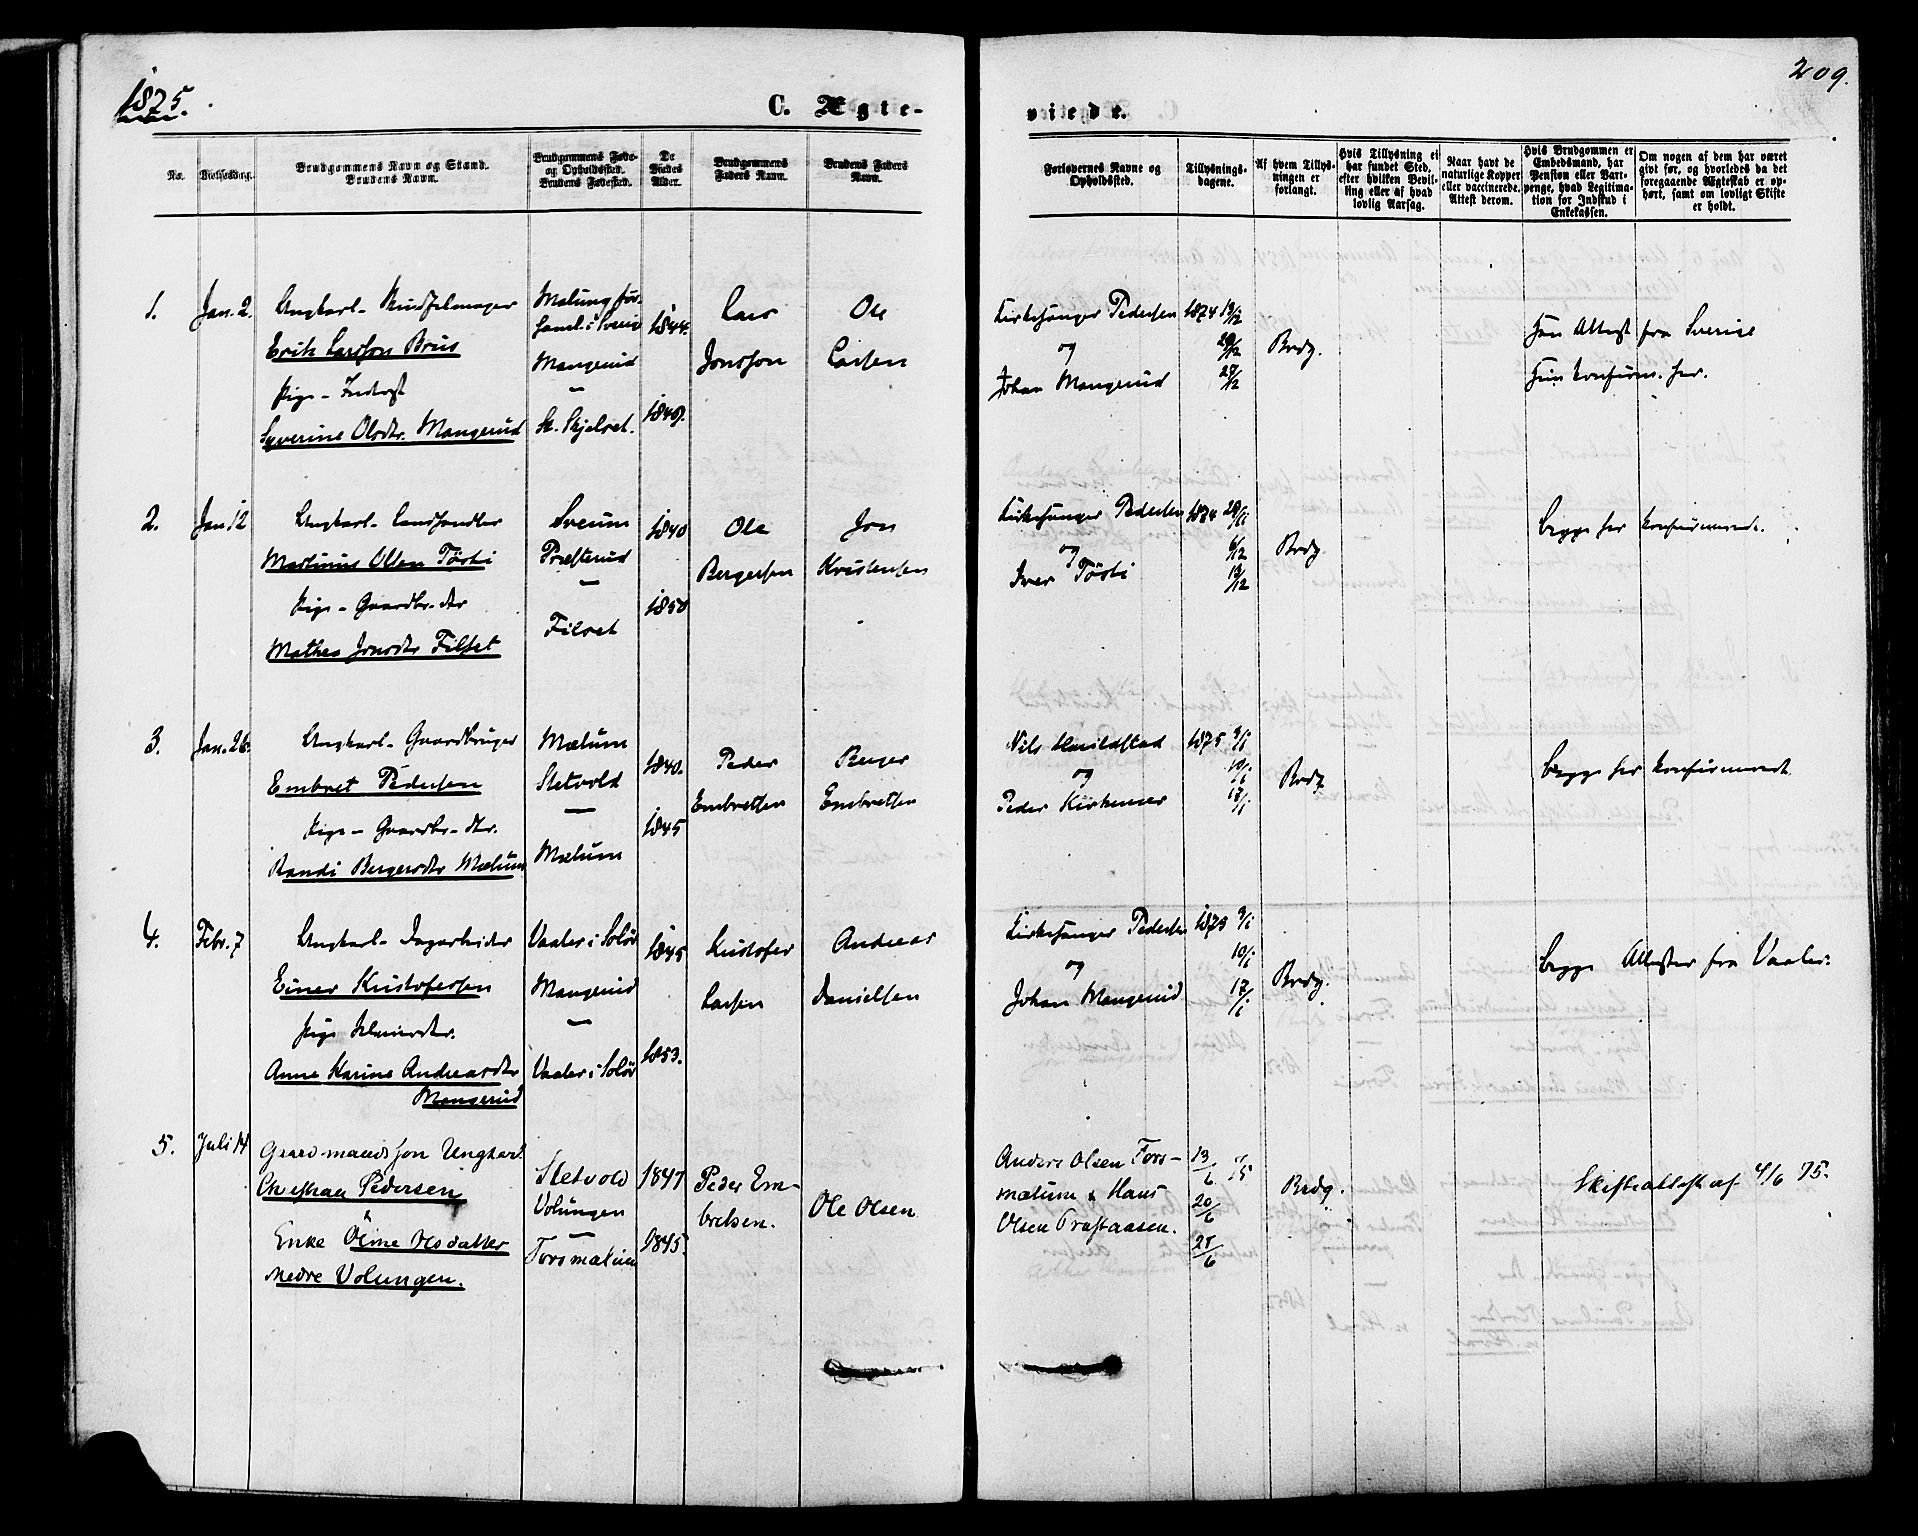 1875.
209.
C. Ægte-
viede.
No.
Vielsesdag.
Brudgommens Navn og Stand.
Brudens Navn.
Brudgommens Føde-
og Opholdssted.
Brudens Fødested.
De
Viedes
Alder.
Brudgommens
Faders Navn.
Brudens Faders
Navn.
Forlovernes Navne og
Opholdssted.
Tillysnings-
dagene.
Af hvem Tillys-
ningen er
forlangt.
Hvis Tillysning ei
har fundet Sted,
efter hvilken Bevil-
ling eller af hvad
lovlig Aarsag.
Naar havt de
naturlige Kopper
eller vaccinerede.
Attest derom.
Hvis Brudgommen er
Embedsmand, har
Pension eller Vart-
penge, hvad Legitima-
tion for Indskud i
Enkekassen.
Om nogen af dem har været
givt før, og hvorledes da det
foregaaende Ægteskab er op-
hørt, samt om lovligt Skifte
er holdt.
1.
Jan. 2.
Ungkarl -
Erik Larsson Brus
Pige - Inderst
Syverine Olsdtr. Mangerud
Malung för-
saml. i Sverig
Mangerud
—
St. Skjelset.
1844.
1849.
Lars
Jonsson
Ole
Larsen
Kirkesanger Pedersen
og
Johan Mangerud
1874 13/12
20/12
27/12
Brdg.
Han Attest fra Sverige
Hun konfirm. her.
2.
Jan 12
Ungkarl - Landhandler
Martinus Olsen Törbi
Pige - Gaardbr. dtr
Mathea Jonsdtr Filset
Sveum
Præsterud
—
Filset
1840
1850
Ole
Bergersen
Jon
Kristensen
Kirkesanger Pedersen
og
Iver Törbi
1874 29/11
6/12
13/12
Brdg.
begge her konfirmerede.
3.
Jan. 26.
Ungkarl - Gaardbruger
Embret Pedersen
Pige - Gaardbr - dtr.
Randi Bergersdtr Mælum
Mælum
Sletvold
—
Mælum
1840.
1845
Peder
Embretsen
Berger
Embretsen
Nils
og
Peder Kirkemoer
1875 3/1
10/1
17/1
Brdg
begge her konfirmerede
4.
Febr. 7
Ungkarl - Dagarbeider
Einer Kristofersen
Pige
Anne Karine Andreasdtr
Mangerud
Vaaler i Solör
Mangerud
—
Vaaler i Solör
1845
1853.
Kristofer
Larsen
Andreas
Danielsen
Kirkesanger Pedersen
og
Johan Mangerud
1875 3/1
10/1
17/1
Brdg.
begge Attester fra Vaaler.
5.
Juli 14
Gaardmandssøn Ungkarl
Christian Pedersen
&
Enke Oline Olsdatter
Nedre Volungen.
Sletvold
Volungen
—
Forsmælum
1847
1845
Peder Em-
bretsen.
Ole Olsen
Anders Olsen Fors-
mælum & Hans
Olsen Præstaasen.
13/6 75
20/6
27/6
Brdg.
Skifteattest af 4/6 75.